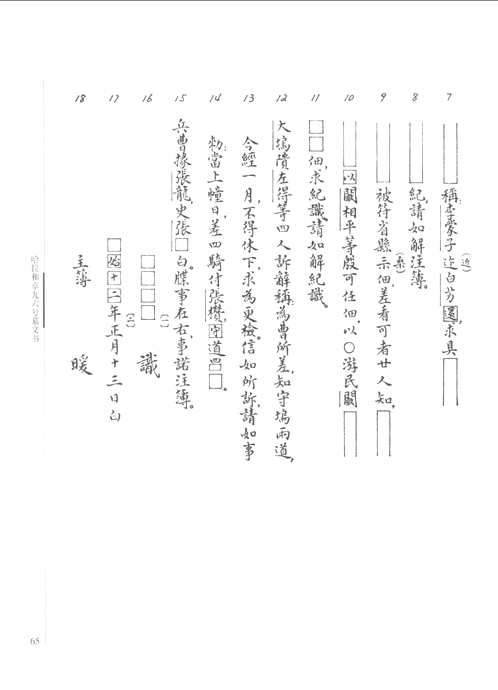 7 □稱：李蒙子近白芳□，求具□
（迩）
8 □紀，請如解注簿。
9 □被符省縣桑佃，差看可者廿人知。
（乘）
10 □以闞相平等殷可任佃，以○游民闞□
11 □□佃，求紀識請如解紀識。
12 大塢隤左得等四人訴辭稱：為曹所差，知守塢兩道，
13 今經一月，不得休下，求為更檢。信如所訴，請如事
14 敕：當上幢日，差四騎付張欑，守道□□。
15 兵曹掾張龍，史張□白。牒事在右，事諾注簿。
（一）
16 □□□□ 識
（二）
17 □始十二年正月十三日白
18 主簿 暖
哈拉和卓九六號墓文書
65